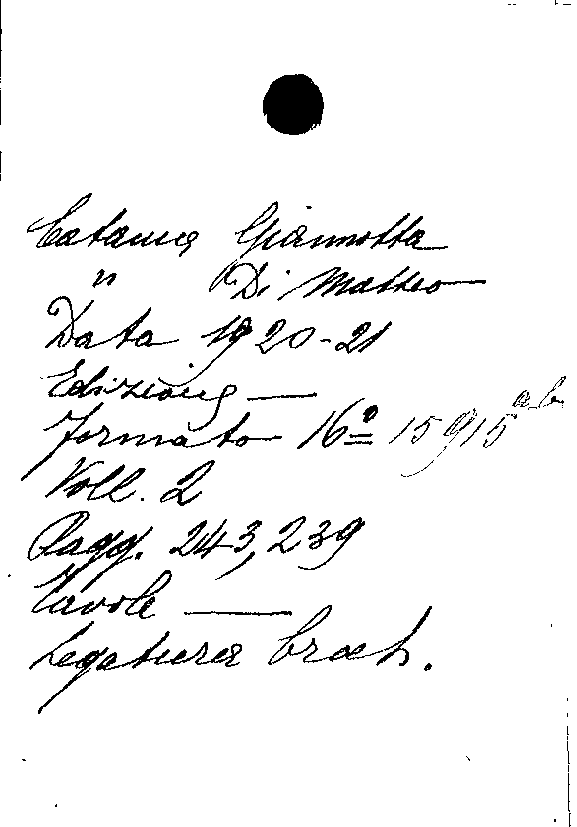 Catania Giannotta
" Di Matteo
Data 1920-21
Edizione —
Formato 16º 15915 ab
Voll. 2
Pagg. 243, 239
Tavole —
Legatura broch.